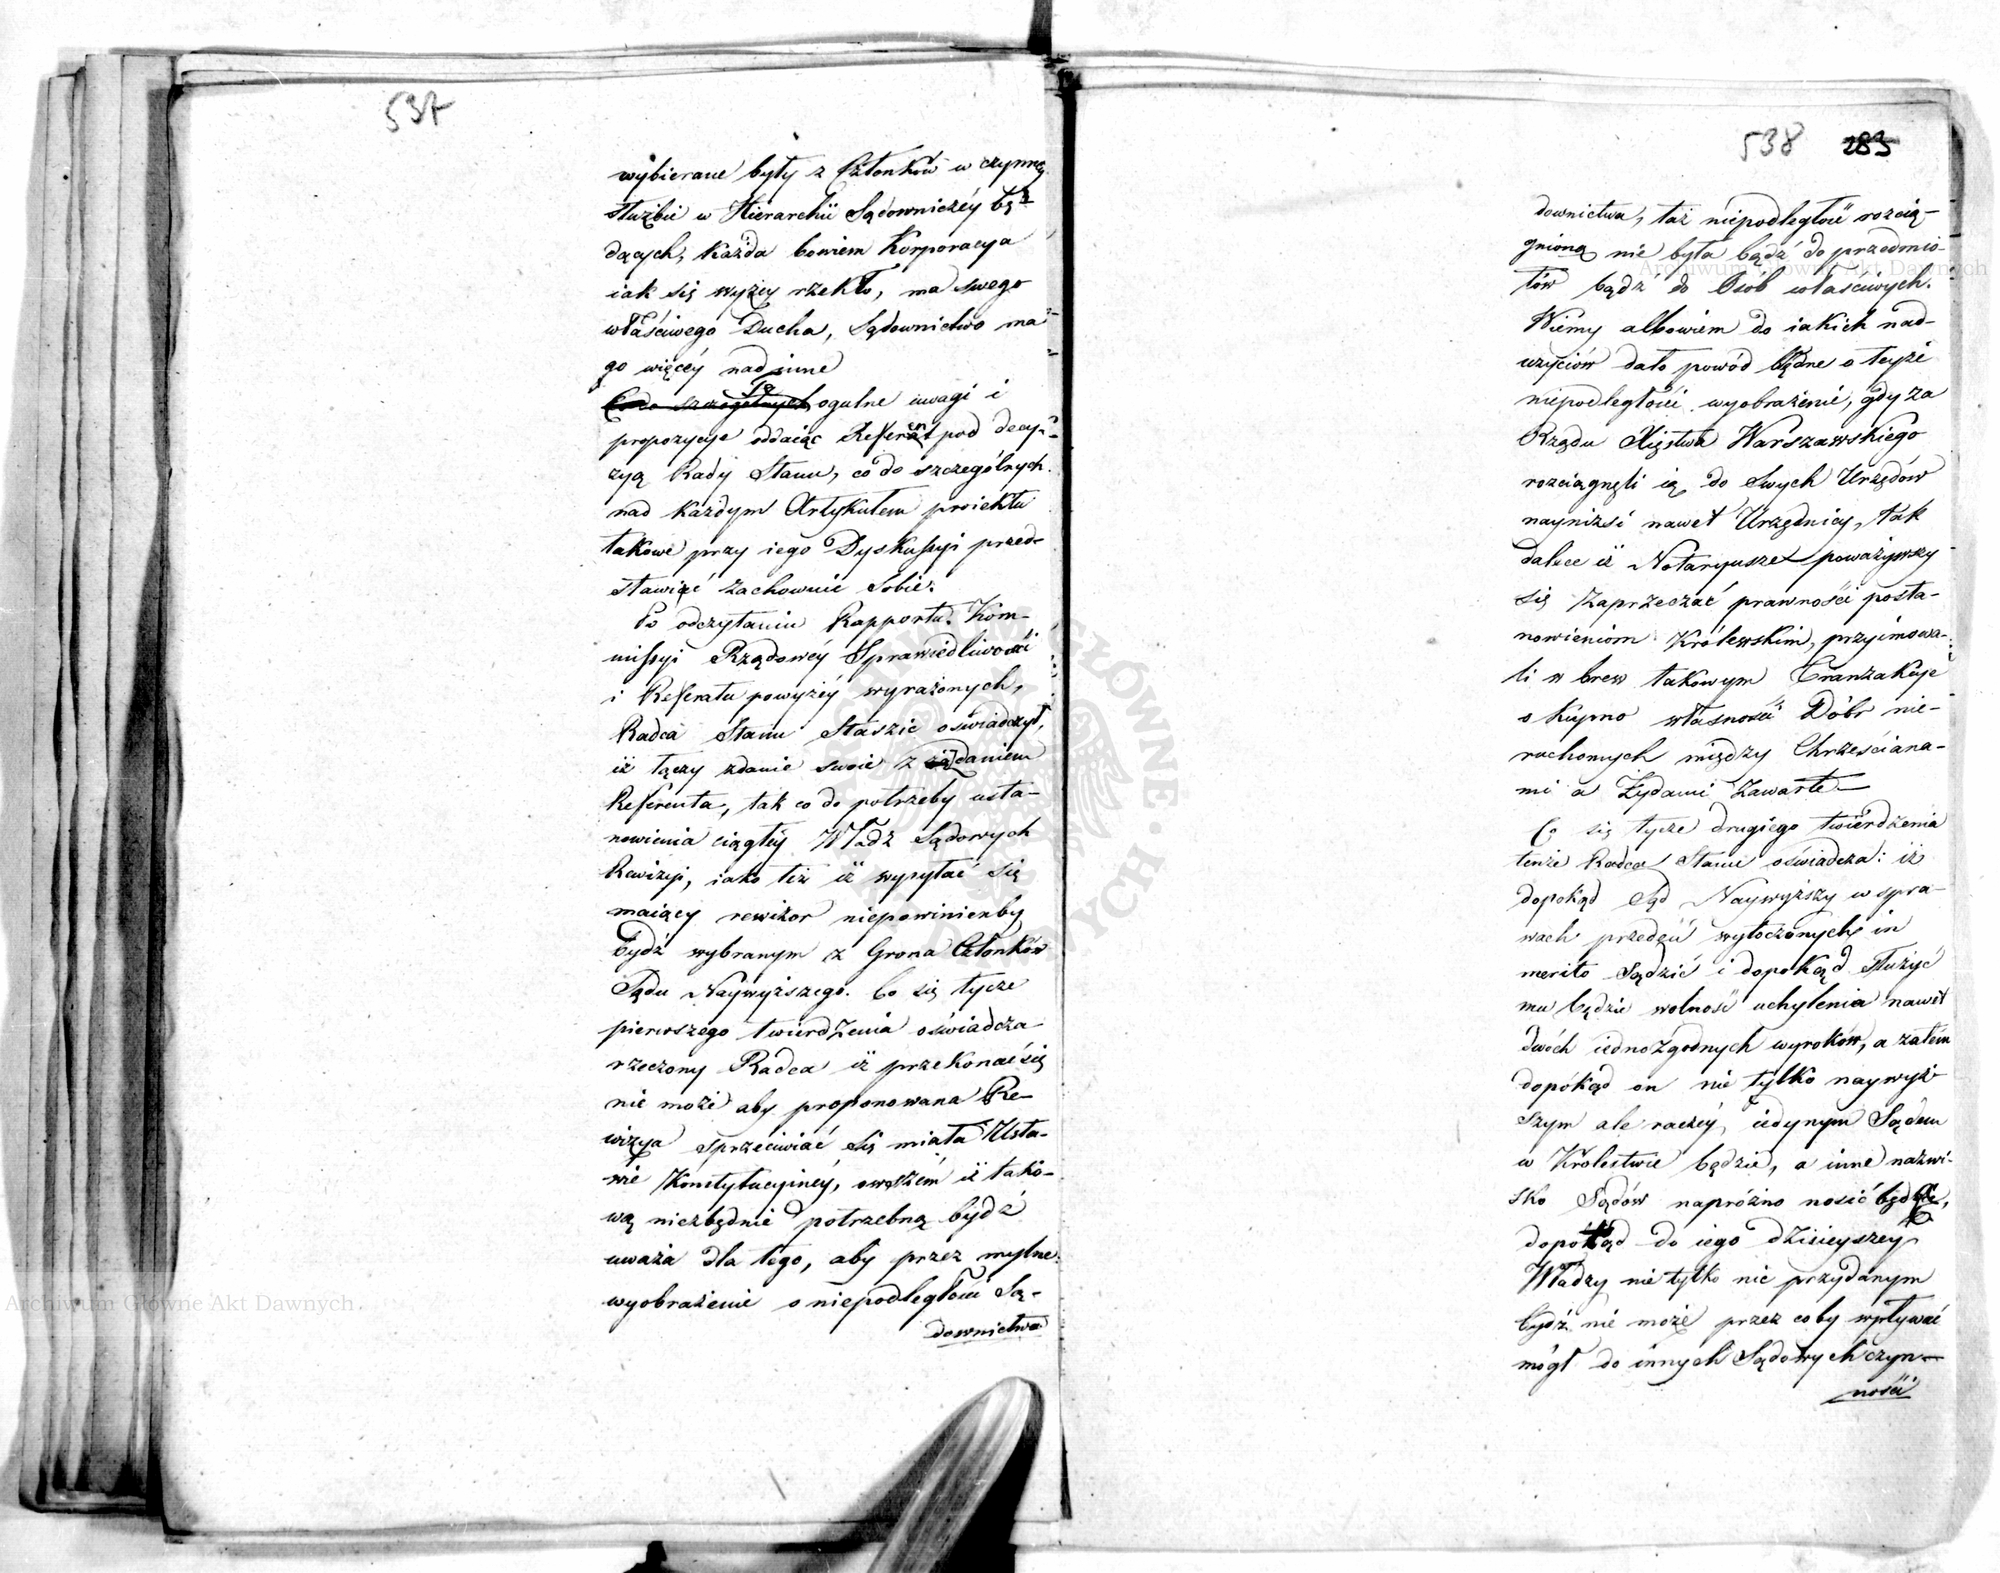 537
wybierane były z Członków w czynnéy
służbie w Hierarchii Sądowniczéy bę-
dących, każda bowiem Korporacya
iak się wyżey rzekło, ma swego
właściwego Ducha, Sądownictwo ma
go więcéy nad inne
Co do szczegulnych Te ogulne uwagi i
propozycye oddaiąc Referent pod decy-
zyą Rady Stanu, co do szczególnych
nad każdym Artykułem proiektu
takowe przy iego Dyskussyi przed-
stawiać zachownie sobie.
Po odczytaniu Rapportu Kom-
missyi Rządowéy Sprawiedliwości
i Referatu powyżéy wyrażonych,
Radca Stanu Staszic oświadczył,
iż łączy zdanie swoie z żądaniem
Referenta, tak co do potrzeby usta-
nowienia ciągłéy Władz Sądowych
Rewizyi, iako też iż wysyłać się
maiący rewizor niepowinienby
bydź wybranym z Grona Członków
Sądu Naywyższego. Co się tycze
pierwszego twierdzenia oświadcza
rzeczony Radca iż przekonać się
nie może aby proponowana Re-
wizya sprzeciwiać się miała Usta-
wie Konstytucyinéy, owszém iż tako-
wą niezbędnie potrzebną bydź
uważa dla tego, aby przez mylne
wyobrażenie o niepodległości Są-
downictwa
538 283
downictwa, taż niepodległość rozcią-
gnioną nie była bądź do przedmio-
tów bądź do Osób właściwych.
Wiemy albowiem do iakich nad-
użyciów dało powód błędne o teyże
niepodległości wyobrażenie, gdy za
Rządu Xięstwa Warszawskiego
rozciągnęli ią do swych Urzędów
nayniżsi nawet Urzędnicy, tak
dalece iż Notaryusze poważywszy
się zaprzeczać prawności posta-
nowieniom Królewskim, przyimowa-
li w brew takowym Tranzakcye
o kupno własności Dóbr nie-
ruchomych między Chrześciana-
mi a Żydami zawarte
Co się tycze drugiego twierdzenia
tenże Radca Stanu oświadcza: iż
dopokąd Sąd Naywyższy w spra-
wach przedeń wytoczonych in
merito sądzić i dopokąd służyć
mu będzie wolność uchylenia nawet
dwóch iednozgodnych wyroków, a zatém
dopókąd on nie tylko naywyż-
szym ale raczéy iedynym Sądem
w Królestwie będzie, a inne nazwi-
sko Sądów napróżno nosić będą,
dopokąd do iego dzisieyszey
Władzy nie tylko nic przydanym
bydź nie może przez coby wpływać
mógł do innych Sądowych czyn-
ności
Archiwum Główne Akt Dawnych
Archiwum Główne Akt Dawnych